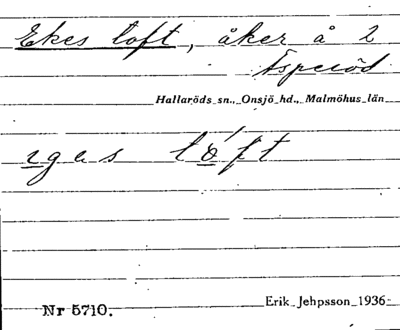 Ekes loft, åker å 2
Äsperöd
Hallaröds sn., Onsjö hd., Malmöhus län
igəs lòft
Nr 5710.
Erik Jehpsson 1936